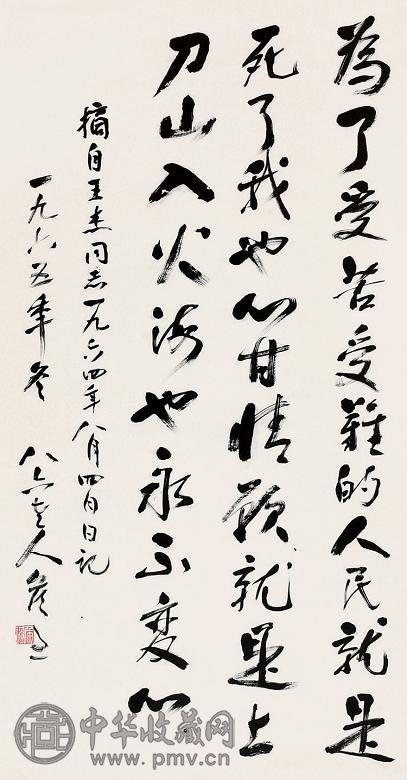 為了受苦受難的人民就是
死了我也心甘情願就是上
刀山入火海也永不变心
摘自王杰同志一九六四年八月四日日记
一九六五年冬 八六老人
中华收藏网
www.pmv.cn